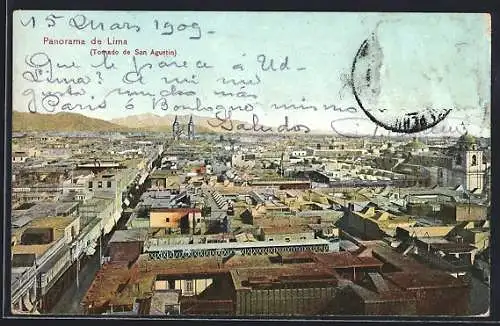 15 Mars 1909.
Panorama de Lima
(Tomado de San Agustin)
Que le parece á Ud.
Lima? A mi me
gusta mucho más
Paris á Boulogne mismo
Saludos